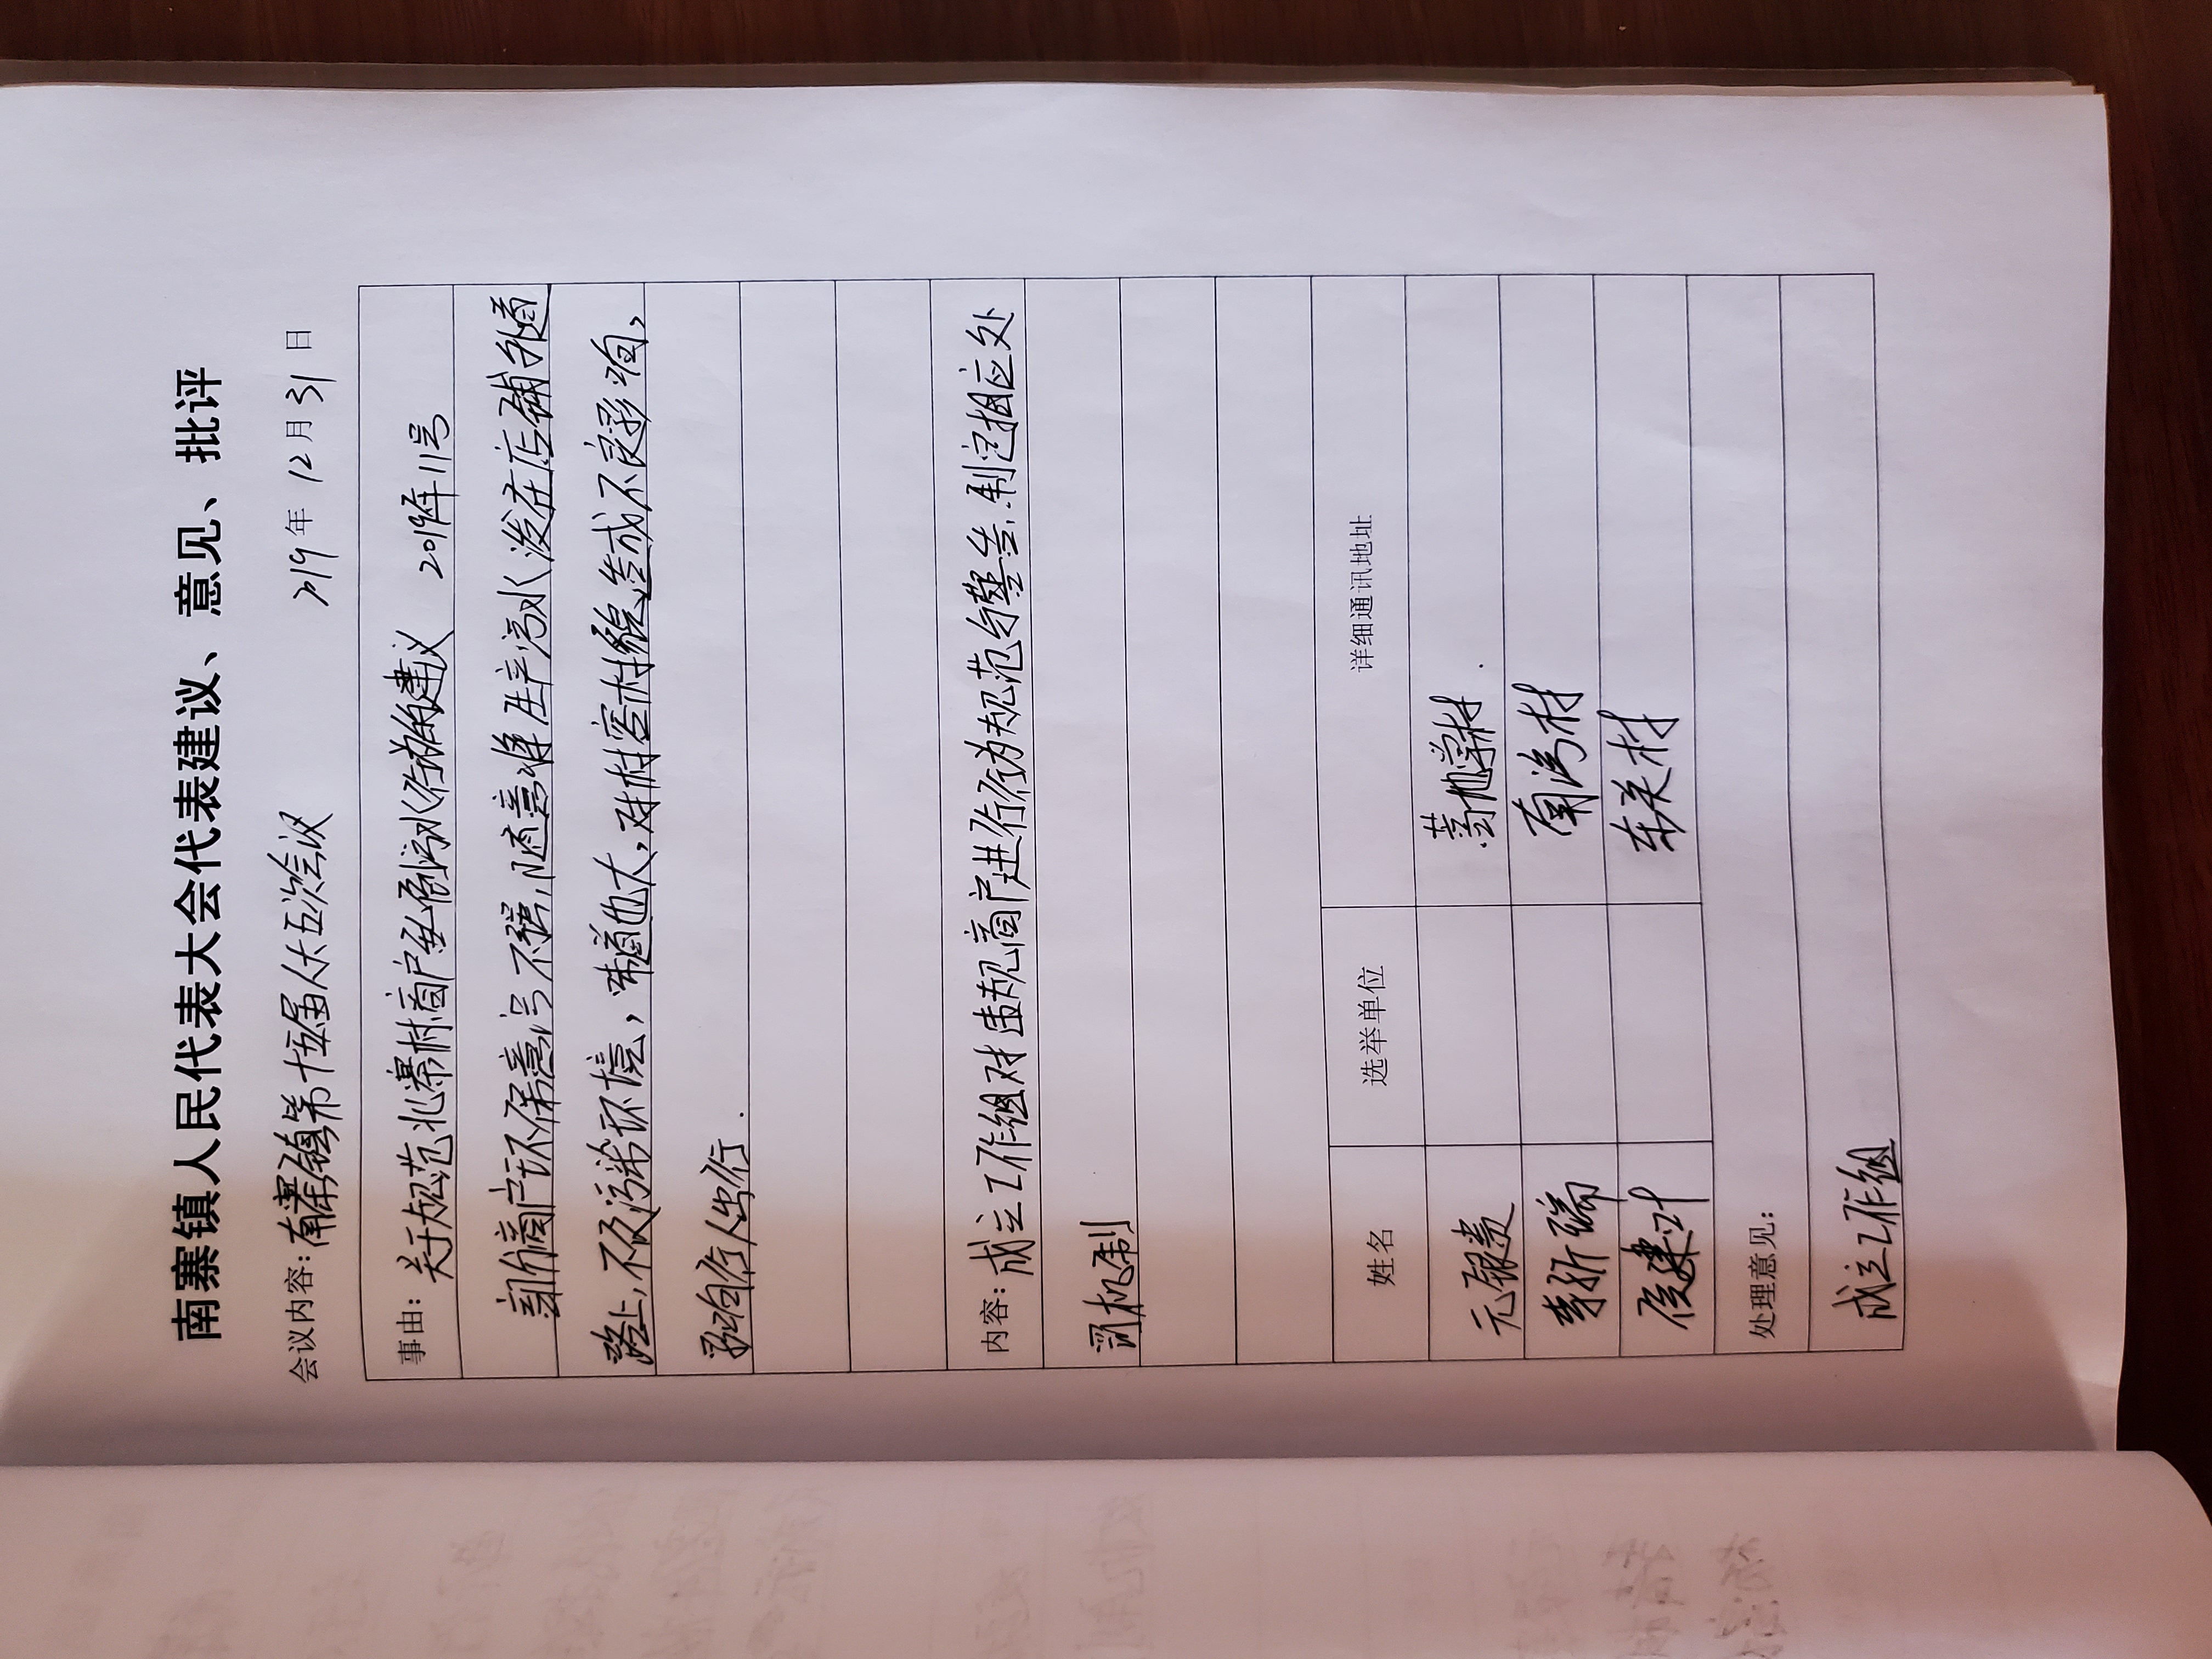 南寨镇人民代表大会代表建议、意见、批评
会议内容：南寨镇第十五届人大五次会议 2019年12月31日
事由：关于规范北寨村商户乱倒污水行为的建议 2019年11号
部分商户环保意识不强，随意将生产污水泼在店铺外道
路上，不及污染环境，味道也大，对村容村貌造成不良影响，
影响行人出行.
内容：成立工作组对违规商户进行行为规范与整害，制定相应处
罚机制
姓名 选举单位 详细通讯地址
元银贵 村
李折瑞 南湾村
侯建叶 东关村
处理意见：
成立工作组